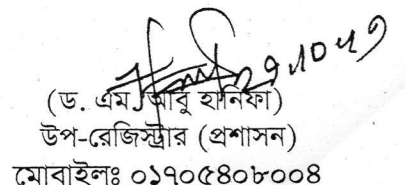 (ড. এম আবু হানিফা)
উপ-রেজিস্ট্রার (প্রশাসন)
মোবাইলঃ ০১৭০৫৪০৮০০৪